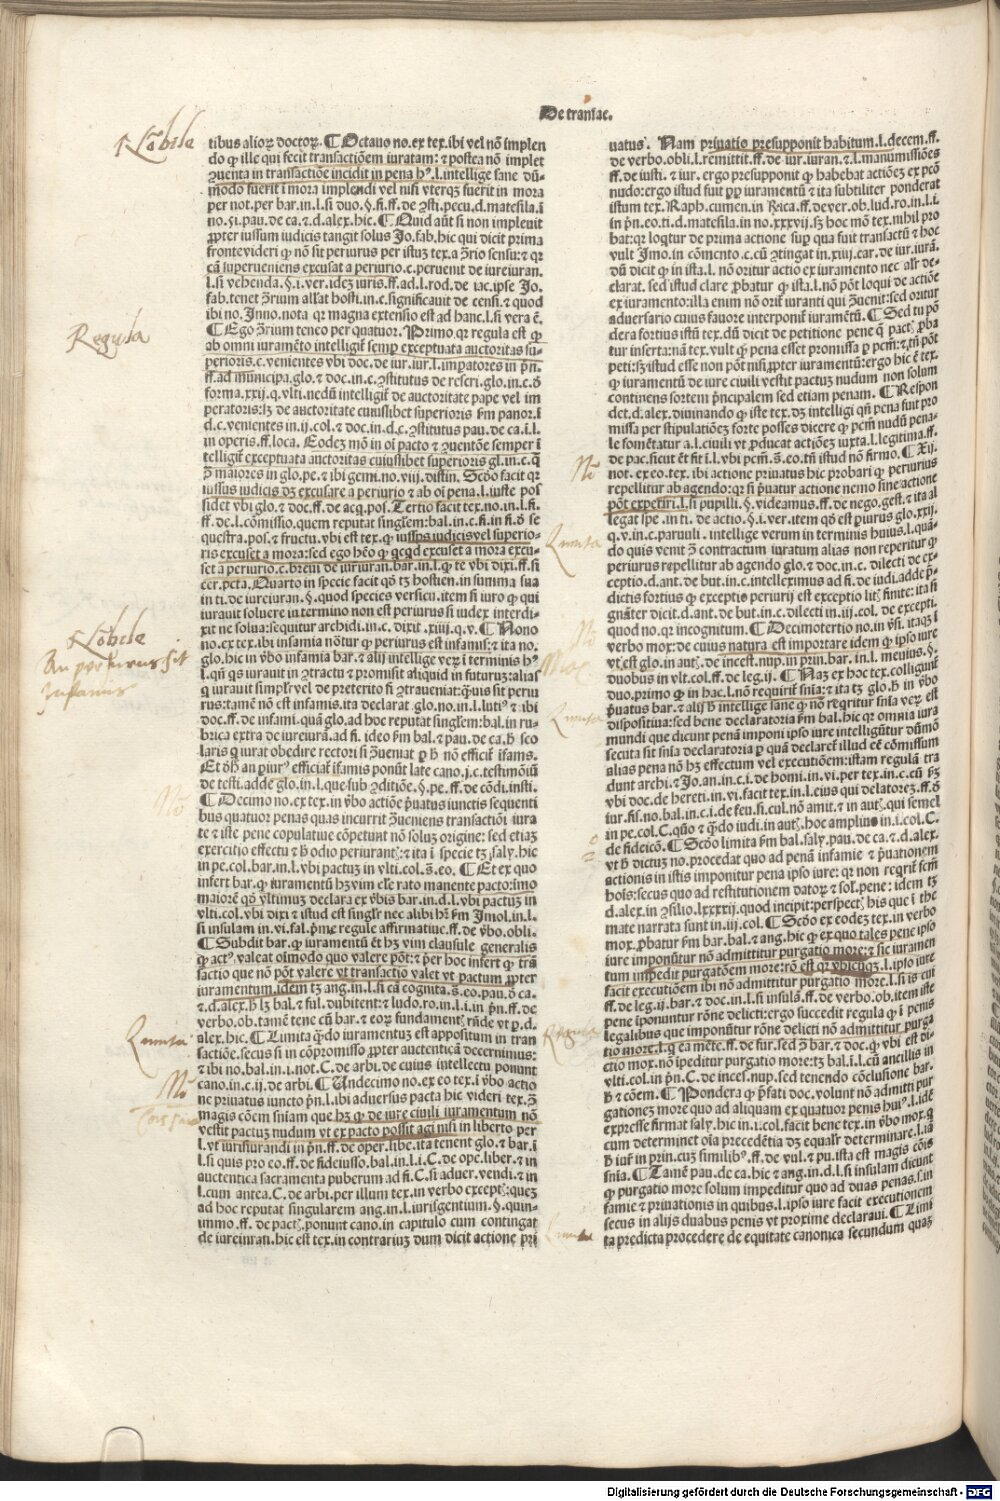 De transac.
tibus alioꝝ doctoꝝ. ¶ Octauo no. ex tex. ibi vel nõ implen
do ꝙ ille qui fecit transactiõem iuratam: ⁊ postea nõ implet
ꝯuenta in transactiõe incidit in pena hꝰ.l. intellige sane dũ-
modo fuerit ĩ mora implendi vel nisi vterqꝫ fuerit in mora
per not. per bar. in.l. si duo.§. fi.ff. de ꝯsti. pecu.d. matesila.ĩ
no.51. pau. de ca.⁊.d. alex. hic. ¶ Quid aũt si non impleuit
ꝓpter iussum iudicis tangit solus Jo. fab. hic qui dicit prima
fronte videri ꝙ nõ sit periurus per istuꝫ tex. a ꝯ̃rio sensu: ⁊ qꝛ
cã superueniens excusat a periurio.c. peruenit de iureiuran.
l. si vehenda.§.i. ver. ideꝫ iuris.ff. ad.l. rod. de iac. ipse Jo.
fab. tenet ꝯ̃rium alľat hosti.in.c. significauit de censi.⁊ quod
ibi no. Inno. nota qꝛ magna extensio est ad hanc.l. si vera ẽ.
¶ Ego ꝯ̃rium teneo per quatuor. Primo qꝛ regula est ꝙ
ab omni iuramẽto intelligiť semꝑ exceptuata auctoritas su-
perioris.c. venientes vbi doc. de iur. iur.l. imꝑatores in p̃n.
ff. ad municipa. glo.⁊ doc. in.c. ꝯstitutus de rescri. glo. in.c. ð
forma.xxij.q. vlti. nedũ intelligiť de auctoritate pape vel im
peratoris: sꝫ de auctoritate cuiuslibet superioris ẜm panor.ĩ
d.c. venientes in.ij. col.⁊ doc. in.d.c. ꝯstitutus pau. de ca.ĩ.l.
in operis.ff. loca. Eodeꝫ mõ in oĩ pacto ⁊ ꝯuentõe semper ĩ
telligiť exceptuata auctoritas cuiuslibet superioris gl. in.c. q̃
ꝯ̃ maiores in glo. pe.⁊ ibi gemi. no. viij. distin. Scďo facit qꝛ
iussus iudicis dꝫ excusare a periurio ⁊ ab oĩ pena.l. iuste pos
sidet vbi glo.⁊ doc.ff. de acq. pos. Tertio facit tex. no. in.l. fi.
ff. de.l. cõmissio. quem reputat singľem: bal. in.c. fi. in fi. ð se
questra. pos.⁊ fructu. vbi est tex. ꝙ iussus iudicis vel superio-
ris excuset a mora: sed ego hẽo ꝙ qcqd excuset a mora excu-
set a periurio.c. breui de iuriuran. bar. in.l. ꝙ te vbi dixi.ff. si
cer. peta. Quarto in specie facit qð tꝫ hostien. in summa sua
in ti. de iureiuran.§. quod species versicu. item si iuro ꝙ qui
iurauit soluere in termino non est periurus si iudex interdi-
xit ne solua: sequitur archidi. in.c. dixit. xiiij.q.v. ¶ Nono
no. ex tex. ibi infamia nõtur ꝙ periurus est infamis: ⁊ ita no.
glo. hic in ṽbo infamia bar.⁊ alij intellige veꝝ ĩ terminis hꝰ
l. qñ qs iurauit in ꝯtractu ⁊ promisit aliquid in futuruꝫ: alias
q̃ iurauit simpľr vel de preterito si ꝯtraueniat: q̃uis sit periu
rus: tamẽ nõ est infamis. ita declarat. glo. no. in.l. lutiꝰ ⁊ ibi
doc.ff. de infami. quã glo. ad hoc reputat singľem: bal. in ru-
brica extra de iureiurã. ad fi. ideo ẜm bal.⁊ pau. de ca.ð sco
laris q̃ iurat obedire rectori si ꝯ̃ueniat ꝑ ħ nõ efficiť ĩfamis.
Et ðbñ an piurꝰ efficiaľ ĩfamis ponũt late cano.j.c. testimõiũ
de testi. adde glo. in.l. que sub ꝯditiõe.§. pe.ff. de cõdi. insti.
¶ Decimo no. ex tex. in ṽbo actiõe p̃uatus iunctis sequenti
bus quatuor penas quas incurrit ꝯ̃ueniens transactiõi iura
te ⁊ iste pene copulatiue cõpetunt nõ soluꝫ origine: sed etiaꝫ
exercitio effectu ⁊ ħ odio periurantꝭ: ⁊ ita ĩ specie tꝫ saly. hic
in pe. col. bar. in.l. vbi pactuꝫ in vlti. col. s̃.eo. ¶ Et ex quo
infert bar. ꝙ iuramentũ hꝫ vim eľe rato manente pacto: imo
maiorẽ qð ṽltimuꝫ declara ex ṽbis bar. in.d.l. vbi pactuꝫ in
vlti. col. vbi dixi ⁊ istud est singľr nec alibi hr̃ ẜm Jmol. in.l.
si insulam in. vi. fal. p̃me regule affirmatiue.ff. de ṽbo. obli.
¶ Subdit bar. ꝙ iuramentũ eť hꝫ vim clausule generalis
ꝙ actꝰ. valeat oĩmodo quo valere põt: ⁊ per hoc infert ꝙ trã
sactio que non põt valere vt transactio valet vt pactum ꝓpter
iuramentum. idem tꝫ ang. in.l. si cã cognita. s̃. eo. pau. ð ca.
⁊.d. alex. ħ lꝫ bal.⁊ ful. dubitent: ⁊ ludo. ro. in.l.i. in p̃n.ff. de
verbo. ob. tamẽ tene cũ bar.⁊ eoꝝ fundamentꝭ rñde vt ꝑ.d.
alex. hic. ¶ Limita q̃do iuramentuꝫ est appositum in tran
sactiõe. secus si in cõpromisso ꝓpter autenticã decernimus:
⁊ ibi no. bal. in.i. not. C. de arbi. de cuius intellectu ponunt
cano. in.c.ij. de arbi. ¶ Undecimo no. ex eo tex.ĩ ṽbo actio
ne priuatus iuncto p̃n.l. ibi aduersus pacta hic videri tex. ꝯ̃
magis cõem sniam que hꝫ ꝙ de iure ciuili iuramentum nõ
vestit pactuꝫ nudum vt ex pacto possit agi nisi in liberto per
l. vt iurisiurandi in p̃n.ff. de oper. libe. ita tenent glo.⁊ bar.ĩ
l. si quis pro eo.ff. de fideiusso. bal. in.l.i. C. de ope. liber.⁊ in
auctentica sacramenta puberum ad fi. C. si aduer. vendi.⁊ in
l. cum antea. C. de arbi. per illum tex. in verbo exceptꝭ: queꝫ
ad hoc reputat singularem ang. in.l. iurisgentium.§. quin-
immo.ff. de pactꝭ. ponunt cano. in capitulo cum contingat
de iureiuran. hic est tex. in contrariuꝫ dum dicit actione pri
uatus. Nam priuatio presupponit habitum.l. decem.ff.
de verbo. obli.l. remittit.ff. de iur. iuran.⁊.l. manumissiões
ff. de iusti.⁊ iur. ergo presupponit ꝙ habebat actiõeꝫ ex pcõ
nudo: ergo istud fuit ꝓp̃ iuramentũ ⁊ ita subtiliter ponderat
istum tex. Raph. cumen. in R̃ica.ff. de ver. ob. lud. ro. in.l.i.
in p̃n. eo. ti.d. matesila. in no. xxxvij. sꝫ hoc mõ tex. nihil pro
bat: qꝛ loqͭur de prima actione suꝑ qua fuit transactũ ⁊ hoc
vult Jmo. in cõmento.c. cũ ꝯtingat in. xiij. car. de iur. iurã.
dũ dicit ꝙ in ista.l. nõ oritur actio ex iuramento nec alr̃ de-
clarat. sed istud clare ꝓbatur ꝙ ista.l. nõ põt loqui de actiõe
ex iuramento: illa enim nõ oriť iuranti qui ꝯ̃uenit: sed oritur
aduersario cuius fauore interponiť iuramẽtũ. ¶ Sed tu põ
dera fortius istũ tex. dũ dicit de petitione pene q̃ pactꝭ ꝓba
tur inserta: nã tex. vult ꝙ pena esset promissa ꝑ pcm̃: ⁊ tñ põt
peti: sꝫ istud esse non põt nisi ꝓpter iuramentũ: ergo hic ẽ tex.
ꝙ iuramentũ de iure ciuili vestit pactuꝫ nudum non solum
continens sortem p̃ncipalem sed etiam penam. ¶ Respon
det.d. alex. diuinando ꝙ iste tex. dꝫ intelligi qñ pena fuit pro
missa per stipulatiõeꝫ forte posses dicere ꝙ pcm̃ nudũ pena-
le fomẽtatur a.l. ciuili vt ꝓducat actiõeꝫ iuxta.l. legitima.ff.
de pac. sicut eť fit ĩ.l. vbi pcm̃. s̃. eo. tñ istud nõ firmo. ¶ Xij.
not. ex eo. tex. ibi actione priuatus hic probari ꝙ periurus
repellitur ab agendo: qꝛ si p̃uatur actione nemo sine actione
põt experiri.l. si pupilli.§. videamus.ff. de nego. gest.⁊ ita al
legat spe. in ti. de actio.§.i. ver. item qð est ꝑiurus glo. xxij.
q.v. in.c. paruuli. intellige verum in terminis huius.l. quã-
do quis venit ꝯ̃ contractum iuratum alias non reperitur ꝙ
periurus repellitur ab agendo glo.⁊ doc. in.c. dilecti de ex-
ceptio.d. ant. de but. in.c. intelleximus ad fi. de iudi. adde p̃-
dictis fortius ꝙ exceptio periurij est exceptio litꝭ finite: ita si
gnãter dicit.d. ant. de but. in.c. dilecti in. iij. col. de excepti.
quod no. qꝛ incognitum. ¶ Decimotertio no. in ṽsi. itaqꝫ ĩ
verbo mox: de cuius natura est importare idem ꝙ ipso iure
vt est glo. in autꝭ. de incest. nup. in prin. bar. in.l. meuius.§.
duobus in vlt. col.ff. de leg. ij. ¶ Naꝫ ex hoc tex. colligunt
duo. primo ꝙ in hac.l. nõ requiriť sñia: ⁊ ita tꝫ glo. ħ in ṽbo
p̃uatus bar.⁊ alij ħ intellige sane ꝙ nõ reqritur sñia veꝝ est
dispositiua: sed bene declaratoria ẜm bal. hic qꝛ omnia iura
mundi que dicunt penã imponi ipso iure intelligũtur dũmõ
secuta sit sñia declaratoria ꝑ quã declareť illud eẽ cõmissum
alias pena nõ hꝫ effectum vel executiõem: istam regulã tra
dunt archi.⁊ Jo. an. in.c.i. de homi. in. vi. per tex. in.c. cũ ẜꝫ
vbi doc. de hereti. in. vi. facit tex. in.l. eius qui delatoreꝫ.ff. ð
iur. fis. no. bal. in.c.i. de feu. si cul. nõ amit.⁊ in autꝭ. qui semel
in pe. col. C. quõ ⁊ q̃do iudi. in autꝭ. hoc amplius in.i. col. C.
de fideicõ. ¶ Scďo limita ẜm bal. saly. pau. de ca.⁊.d. alex.
vt ħ dictuꝫ no. procedat quo ad penã infamie ⁊ p̃uationem
actionis in istis imponitur pena ipso iure: qꝛ non reqriť scm̃
hoĩs: secus quo ad restitutionem datoꝝ ⁊ sol. pene: idem tꝫ
d. alex. in ꝯsilio. lxxxxij. quod incipit: perspectꝭ his que ĩ the
mate narrata sunt in. iij. col. ¶ Scďo ex codeꝫ tex. in verbo
mox. ꝓbatur ẜm bar. bal.⁊ ang. hic ꝙ ex quo tales pene ipso
iure imponũtur nõ admittitur purgatio more: ⁊ sic iuramen
tum impedit purgatõem more: rõ est qꝛ vbicũqꝫ.l. ipso iure
facit executiõem ibi nõ admittitur purgatio more.l. si is cui
ff. de leg. ij. bar.⁊ doc. in.l. si insulã.ff. de verbo. ob. item iste
pene ĩponuntur rõne delicti: ergo succedit regula ꝙ ĩ penis
legalibus que imponũtur rõne delicti nõ admittitur purga
tio more.l. q̃ ea mẽte.ff. de fur. sed ꝯ̃ bar.⁊ doc. ꝙ vbi est di-
ctio mox. nõ ĩpeditur purgatio more: tꝫ bal.ĩ.l. cũ ancillis in
vlti. col. in p̃n. C. de inces. nup. sed tenendo cõclusione bar.
ħ ⁊ cõem. ¶ Pondera ꝙ p̃fati doc. volunt nõ admitti pur
gationeꝫ more quo ad aliquam ex quatuor penis huiꝰ.l. idẽ
expresse firmat saly. hic in.i. col. facit bene tex. in ṽbo mox. q̃
cum determinet oĩa precedẽtia dꝫ equalr̃ determinare.l. iã
ħ iuẜ in prin. cuꝫ similibꝰ.ff. de vul.⁊ pu. ista est magis cõis
sñia. ¶ Tamẽ pau. de ca. hic ⁊ ang. in.d.l. si insulam dicunt
ꝙ purgatio more solum impeditur quo ad duas penas. s. in
famie ⁊ priuationis in quibus.l. ipso iure facit executionem
secus in alijs duabus penis vt proxime declaraui. ¶ Limi
ta predicta procedere de equitate canonica secundum quaꝫ
Regula
An periurus sit
Infamis
No
Limita
Digitalisierung gefördert durch die Deutsche Forschungsgemeinschaft - DFG